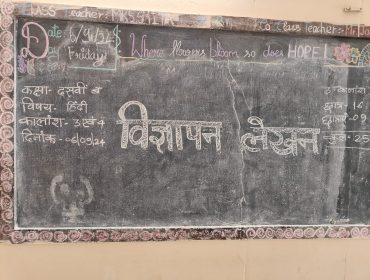 Class Teacher:- MRS.
Co Class Teacher:-
Date 6/9/24
Friday
Where flowers bloom so does HOPE!
कक्षा- दसवीं ब
विषय- हिंदी
कालांश- 3 व 4
दिनांक- 06/09/24
विज्ञापन लेखन
छात्र- 16
छात्राएँ- 09
कुल- 25